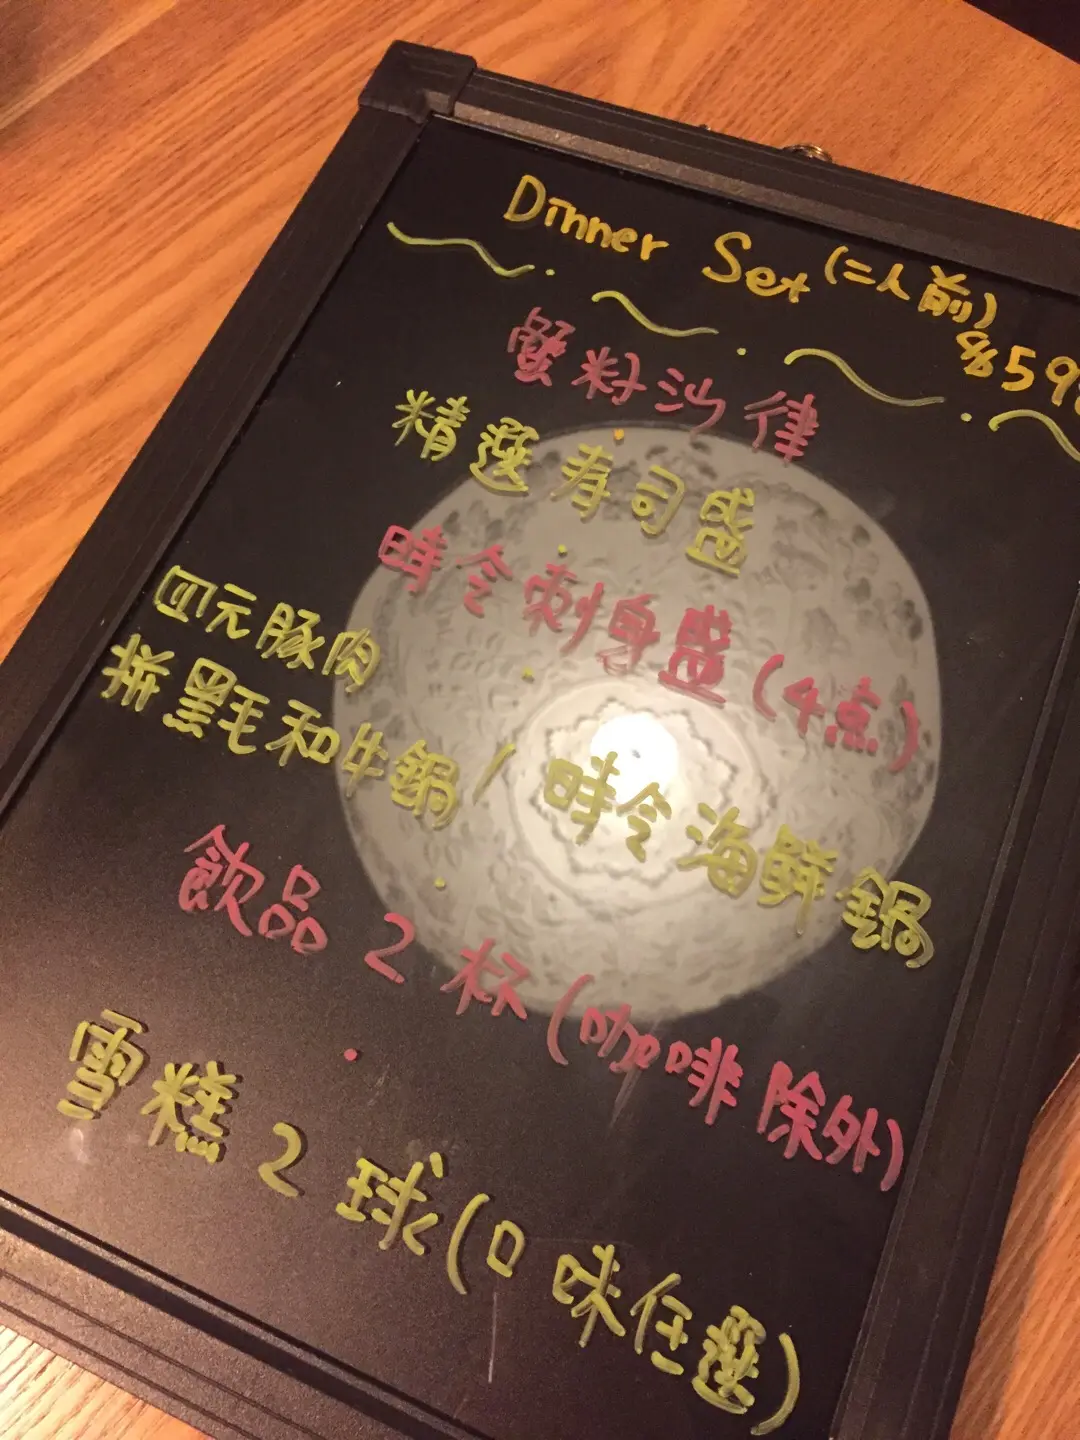 Dinner Set (二人前)
$59
蟹籽沙律
精選寿司盛
時令刺身盛(4点)
四元豚肉
拼黑毛和牛鍋/時令海鮮鍋
飲品2杯(咖啡除外)
雪糕2球(口味任選)